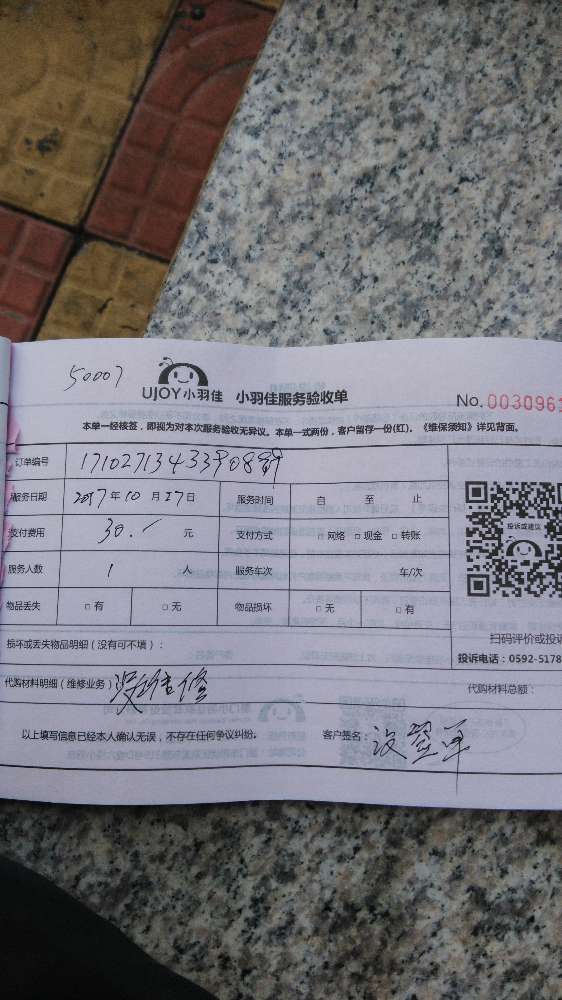 50007
UJOY小羽佳 小羽佳服务验收单
No. 003096
本单一经核签，即视为对本次服务验收无异议。本单一式两份，客户留存一份(红)。《维保须知》详见背面。
订单编号
服务日期 2017年10月27日 服务时间 自 至 止
支付费用 30.- 元 支付方式 □网络 □现金 □转账
投诉或建议
服务人数 1 人 服务车次 车/次
物品丢失 □有 □无 物品损坏 □无 □有
扫码评价或投
损坏或丢失物品明细（没有可不填）：
投诉电话：0592-5178
代购材料明细（维修业务）
代购材料总额：
以上填写信息已经本人确认无误，不存在任何争议纠纷。 客户签名：